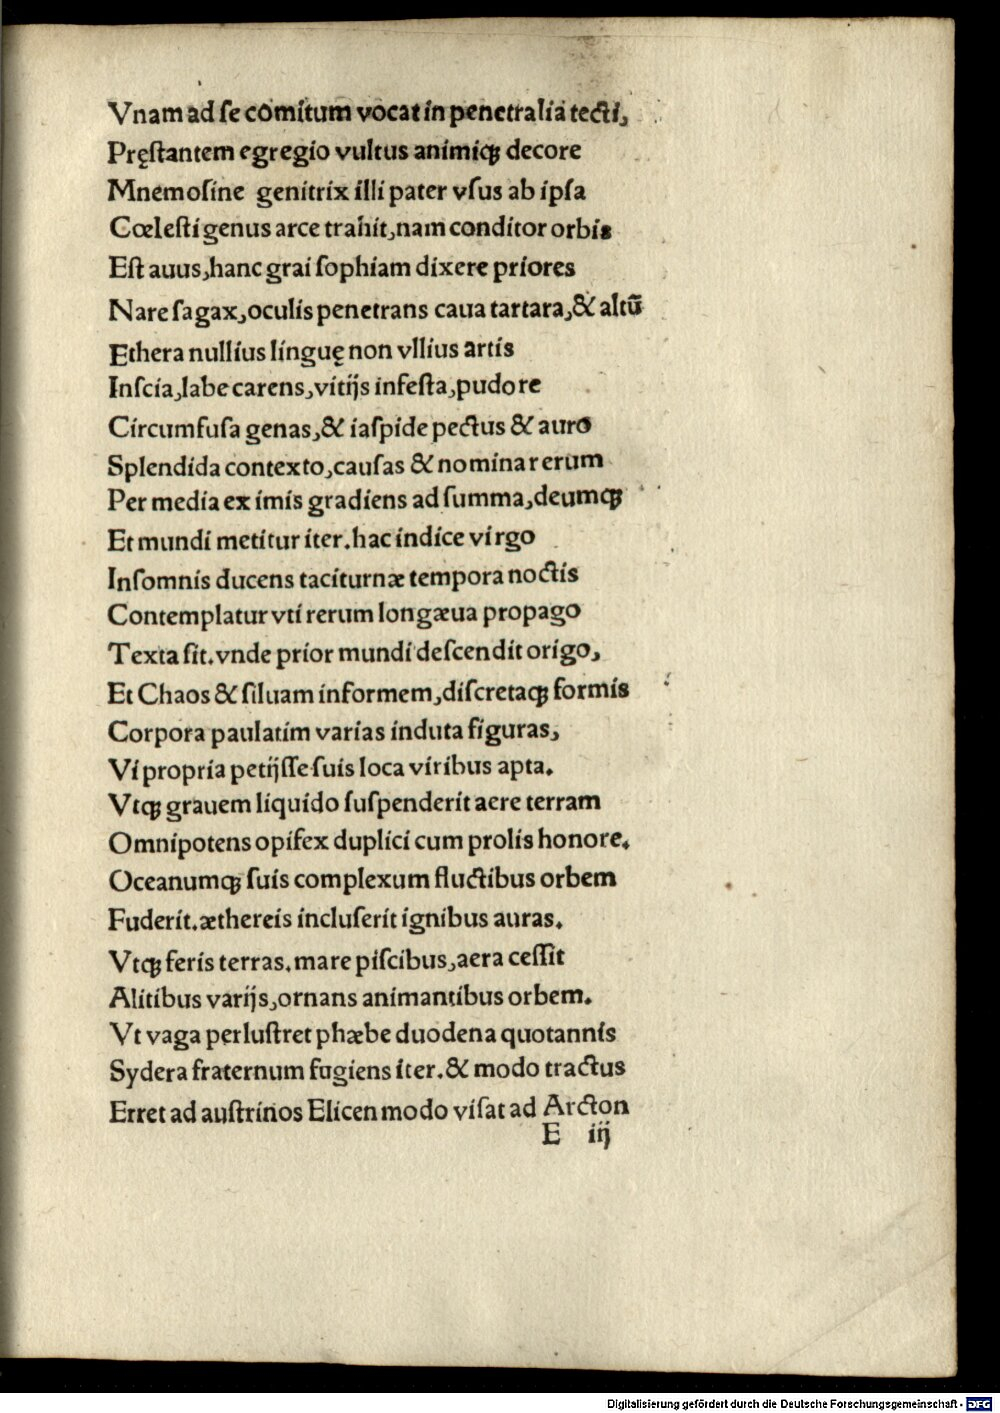 Vnam ad ſe comitum vocat in penetralia tecti,
Pręſtantem egregio vultus animiqꝫ decore
Mnemoſine genitrix illi pater vſus ab ipſa
Cœleſti genus arce trahit, nam conditor orbis
Eſt auus, hanc grai ſophiam dixere priores
Nare ſagax, oculis penetrans caua tartara, & altū
Ethera nullius linguę non vllius artis
Inſcia, labe carens, vitijs infeſta, pudore
Circumfuſa genas, & iaſpide pectus & auro
Splendida contexto, cauſas & nomina rerum
Per media ex imis gradiens ad ſumma, deumqꝫ
Et mundi metitur iter. hac indice virgo
Inſomnis ducens taciturnæ tempora noctis
Contemplatur vti rerum longæua propago
Texta ſit. vnde prior mundi deſcendit origo,
Et Chaos & ſiluam informem, diſcretaqꝫ formis
Corpora paulatim varias induta figuras,
Vi propria petijſſe ſuis loca viribus apta.
Vtqꝫ grauem liquido ſuſpenderit aere terram
Omnipotens opifex duplici cum prolis honore.
Oceanumqꝫ ſuis complexum fluctibus orbem
Fuderit. æthereis incluſerit ignibus auras.
Vtqꝫ feris terras. mare piſcibus, aera ceſſit
Alitibus varijs, ornans animantibus orbem.
Vt vaga perluſtret phæbe duodena quotannis
Sydera fraternum fugiens iter. & modo tractus
Erret ad auſtrinos Elicen modo viſat ad Arcton
E iij
Digitalisierung gefördert durch die Deutsche Forschungsgemeinschaft - DFG